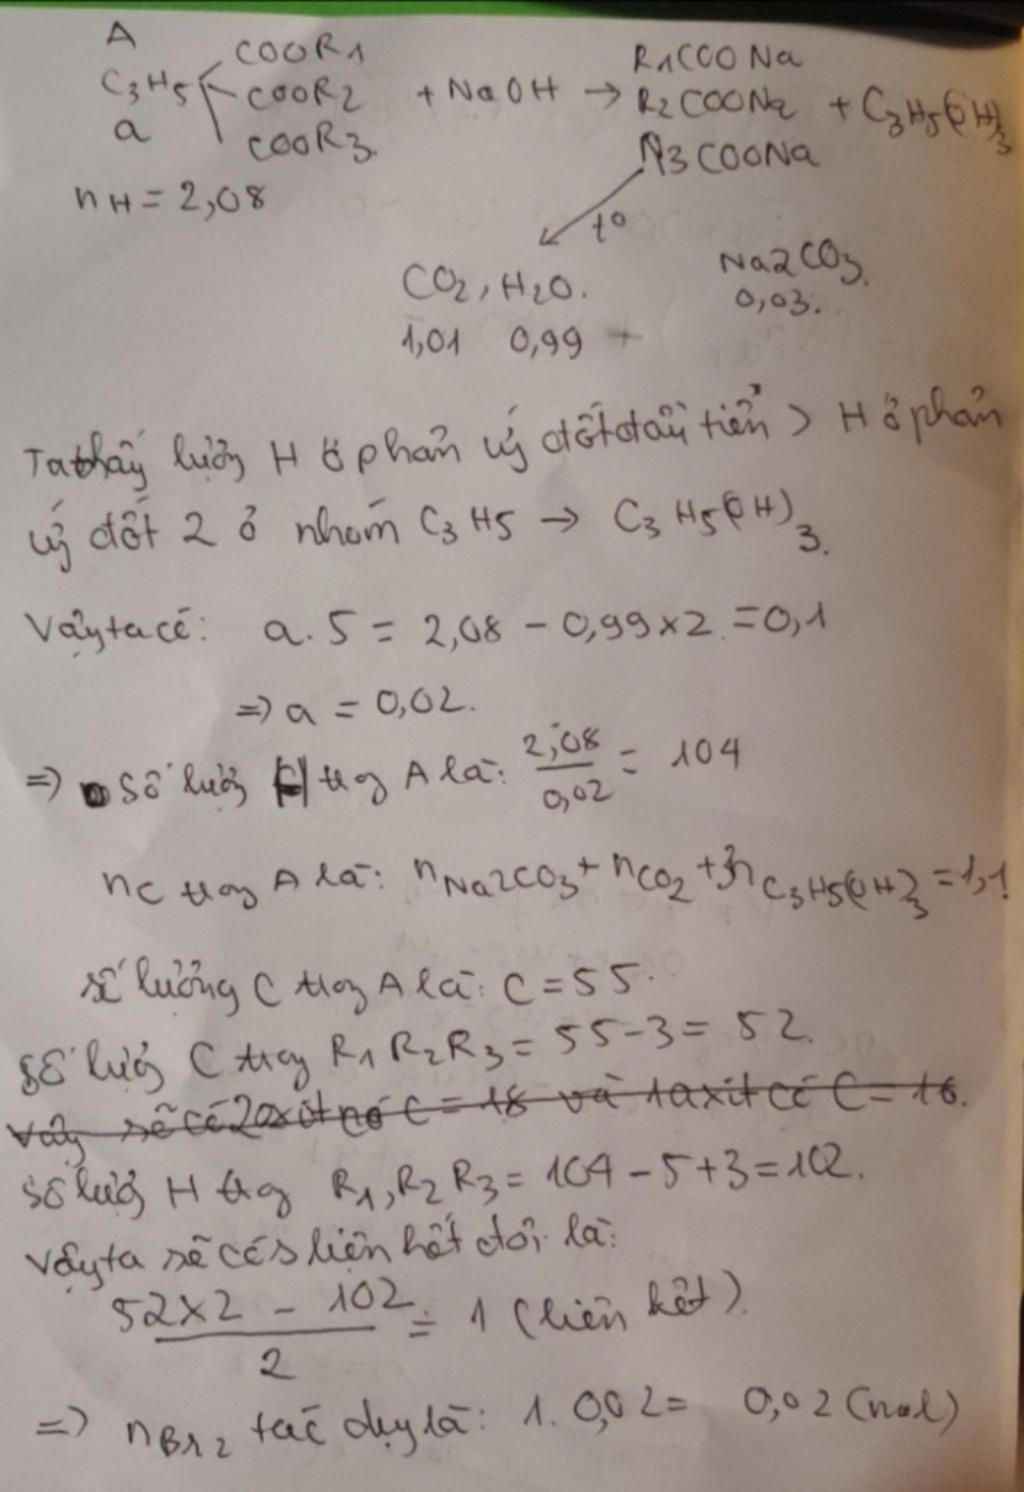 A
C3H5 COOR1 COOR2 COOR3. + NaOH → R1COONa R2COONa R3COONa + C3H5(OH)3
a
nH = 2,08
t°
CO2, H2O. Na2CO3.
1,01 0,99 0,03.
Ta thấy lượng H ở phản ứng đốt đầu tiên > H ở phản
ứng đốt 2 ở nhóm C3H5 → C3H5(OH)3.
Vậy ta có: a.5 = 2,08 - 0,99x2 = 0,1
=> a = 0,02.
=> số lượng H trog A là: 2,08/0,02 = 104
nC trog A là: nNa2CO3 + nCO2 + 3nC3H5(OH)3 = 1,1
số lượng C trog A là: C = 55.
số lượg C trog R1 R2 R3 = 55-3 = 52.
Vậy sẽ có 2 axit có C = 18 và 1 axit có C = 16.
số lượg H trog R1, R2 R3 = 104 - 5+3 = 102.
Vậy ta sẽ có s liên kết đôi là:
52x2 - 102 / 2 = 1 (liên kết).
=> nBr2 tác dụg là: 1. 0,02 = 0,02 (mol)